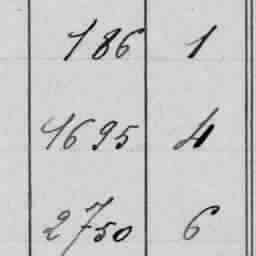 186 1
1695 4
2750 6